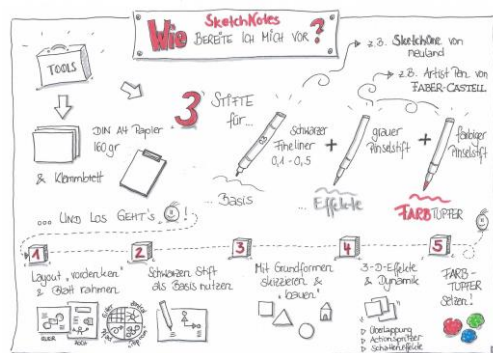 SketchNotes
Wie BEREITE ICH MICH VOR?
TOOLS
z.B. SketchOne von
neuland
z.B. Artist Pen von
FABER-CASTELL
3 STIFTE
für...
DIN A4 Papier
160gr
& Klemmbrett
schwarzer
Fineliner
0,1 - 0,5
+
grauer
Pinselstift
+
farbiger
Pinselstift
... Basis
... Effekte
FARBTUPFER
... UND LOS GEHT's !
1
Layout „vordenken"
& Blatt rahmen
QUER
HOCH
2
Schwarzen Stift
als Basis nutzen
3
Mit Grundformen
skizzieren &
„bauen"
4
3-D-Effekte
& Dynamik
Überlappung
Actionspritzer
Schatteneffekte
5
FARB-
TUPFER
setzen!